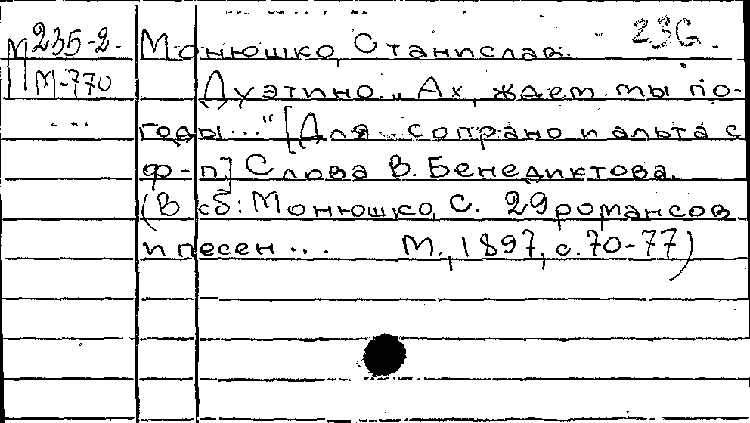 М 235-2. Монюшко, Станислав. 23G.
М-770 Дуэтино. „Ах, ждем мы по-
годы..." [Для сопрано и альта с
ф-п] Слова В. Бенедиктова.
(В сб: Монюшко, С. 29 романсов
и песен... М., 1897, с. 70-77)